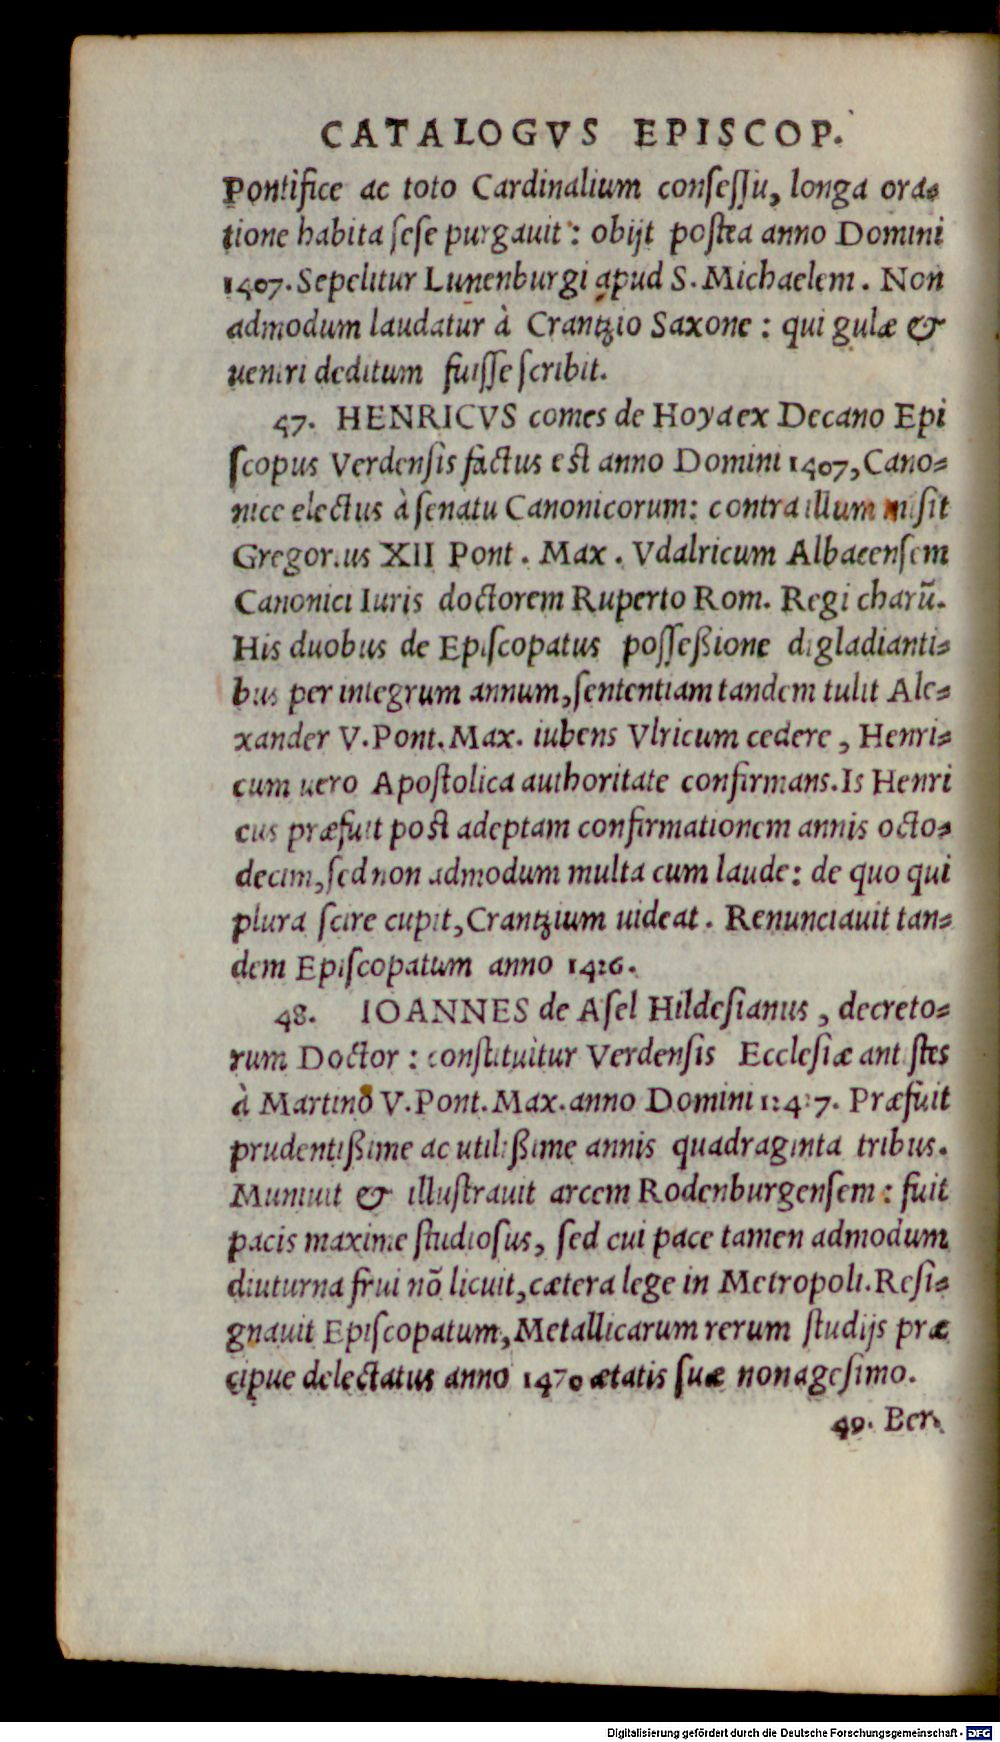 CATALOGVS EPISCOP.
Pontifice ac toto Cardinalium conseſſu, longa ora⸗
tione habita ſeſe purgauit : obijt poſtea anno Domini
1407. Sepelitur Lunenburgi apud S. Michaelem. Non
admodum laudatur à Crantzio Saxone : qui gulæ &
uentri deditum fuiſſe ſcribit.
47. HENRICVS comes de Hoya ex Decano Epi
ſcopus Verdenſis factus eſt anno Domini 1407, Cano⸗
nice electus à ſenatu Canonicorum: contra illum miſit
Gregorius XII Pont. Max. Vdalricum Albaeenſem
Canonici Iuris doctorem Ruperto Rom. Regi charũ.
His duobus de Epiſcopatus poſſeßione digladianti⸗
bus per integrum annum, ſententiam tandem tulit Ale⸗
xander V. Pont. Max. iubens Vlricum cedere, Henri⸗
cum uero Apoſtolica authoritate confirmans. Is Henri
cus præfuit poſt adeptam confirmationem annis octo⸗
decim, ſed non admodum multa cum laude: de quo qui
plura ſcire cupit, Crantzium uideat. Renunciauit tan⸗
dem Epiſcopatum anno 1426.
48. IOANNES de Aſel Hildeſianus, decreto⸗
rum Doctor : conſtituitur Verdenſis Eccleſiæ antiſtes
à Martino V. Pont. Max. anno Domini Præfuit
prudentißime ac utilißime annis quadraginta tribus.
Muniuit & illuſtrauit arcem Rodenburgenſem : fuit
pacis maxime ſtudioſus, ſed cui pace tamen admodum
diuturna frui nõ licuit, cætera lege in Metropoli. Reſi⸗
gnauit Epiſcopatum, Metallicarum rerum ſtudijs præ
cipue delectatus anno 1470 ætatis ſuæ nonageſimo.
49. Ber⸗
Digitalisierung gefördert durch die Deutsche Forschungsgemeinschaft - DFG